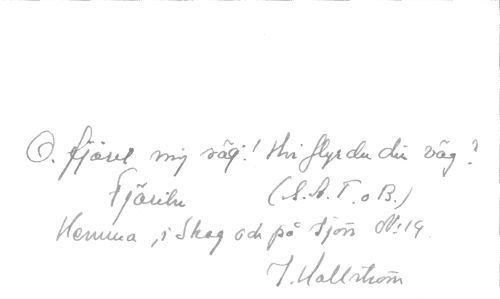 O. fjäril mig säg! Hvi flyr du din väg?
Fjäriln (S.A.T. o B.)
Hemma, i Skog och på Sjön N:19.
I. Hallström